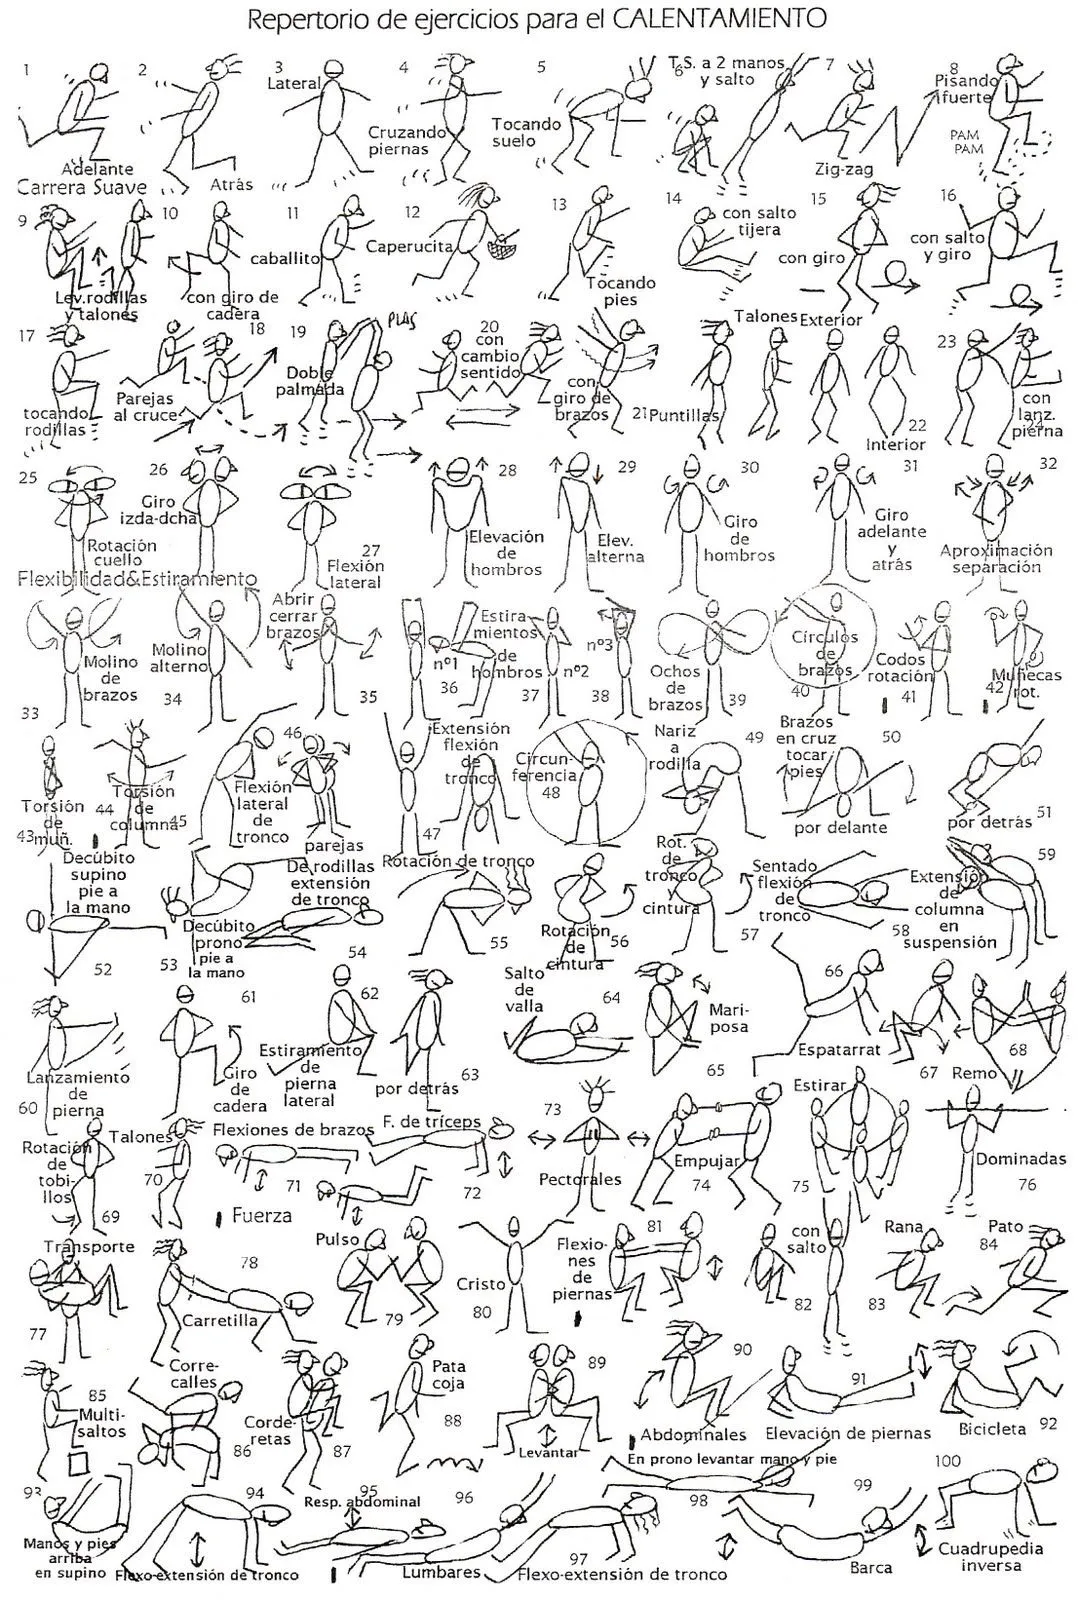 Repertorio de ejercicios para el CALENTAMIENTO
1
2
3
4
5
6
7
8
Lateral
T.S. a 2 manos
y salto
Pisando
fuerte
Cruzando
piernas
Tocando
suelo
PAM
PAM
Adelante
Carrera Suave
Atrás
Zig-zag
9
10
11
12
13
14
15
16
con salto
tijera
caballito
Caperucita
con giro
con salto
y giro
Lev.rodillas
y talones
con giro de
cadera
Tocando
pies
17
18
19
PLAS
20
con
cambio
sentido
Talones
Exterior
23
Doble
palmada
Parejas
al cruce
tocando
rodillas
con
giro de
brazos
21
Puntillas
22
Interior
con
lanz.
pierna
24
25
26
28
29
30
31
32
Giro
izda-dcha
Rotación
cuello
27
Flexión
lateral
Elevación
de
hombros
Elev.
alterna
Giro
de
hombros
Giro
adelante
y
atrás
Aproximación
separación
Flexibilidad&Estiramiento
Abrir
cerrar
brazos
Molino
de
brazos
Molino
alterno
Estira-
mientos
de
hombros
nº1
nº2
nº3
Ochos
de
brazos
Círculos
de
brazos
Codos
rotación
Muñecas
rot.
33
34
35
36
37
38
39
40
41
42
Torsión
de
muñ.
43
44
Torsión
de
columna
45
46
Flexión
lateral
de
tronco
parejas
Extensión
flexión
de
tronco
47
Circun-
ferencia
48
Nariz
a
rodilla
49
Brazos
en cruz
tocar
pies
50
por delante
por detrás
51
Decúbito
supino
pie a
la mano
52
53
Decúbito
prono
pie a
la mano
De rodillas
extensión
de tronco
54
Rotación de tronco
55
Rotación
de
cintura
56
Rot.
de
tronco
y
cintura
57
Sentado
flexión
de
tronco
58
Extensión
de
columna
en
suspensión
59
Lanzamiento
de
pierna
60
61
Giro
de
cadera
62
Estiramiento
de
pierna
lateral
por detrás
63
Salto
de
valla
64
Mari-
posa
65
66
Espatarrat
67
Remo
68
Rotación
de
tobi-
llos
69
Talones
70
Flexiones de brazos
71
F. de tríceps
72
Fuerza
73
Pectorales
Empujar
74
Estirar
75
Dominadas
76
Transporte
77
78
Carretilla
Pulso
79
Cristo
80
Flexio-
nes
de
piernas
81
con
salto
82
Rana
83
Pato
84
85
Multi-
saltos
Corre-
calles
86
Corde-
retas
87
Pata
coja
88
89
Levantar
90
Abdominales
91
Elevación de piernas
Bicicleta
92
93
Manos y pies
arriba
en supino
94
Flexo-extensión de tronco
95
Resp. abdominal
96
Lumbares
97
Flexo-extensión de tronco
En prono levantar mano y pie
98
99
Barca
100
Cuadrupedia
inversa